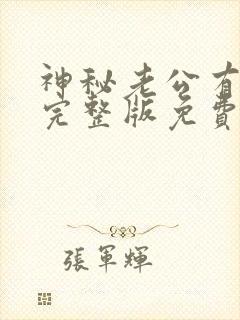 神秘老公有
完整版免費
張軍輝